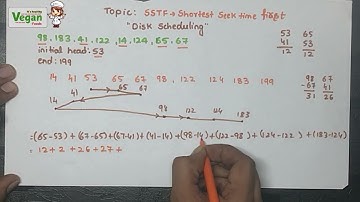 It's healthy
Vegan
Foods
Topic: SSTF → Shortest Seek time first
"Disk Scheduling"
98, 183, 41, 122, 14, 124, 65, 67
initial head: 53
end: 199
53 65
41 53
12 12
14 41 53 65 67 98, 122 124 183
98 67
-67 41
31 26
65 67
41
14
98 122 124 183
= (65-53) + (67-65) + (67-41) + (41-14) + (98-14) + (122-98) + (124-122) + (183-124)
= 12 + 2 + 26 + 27 +